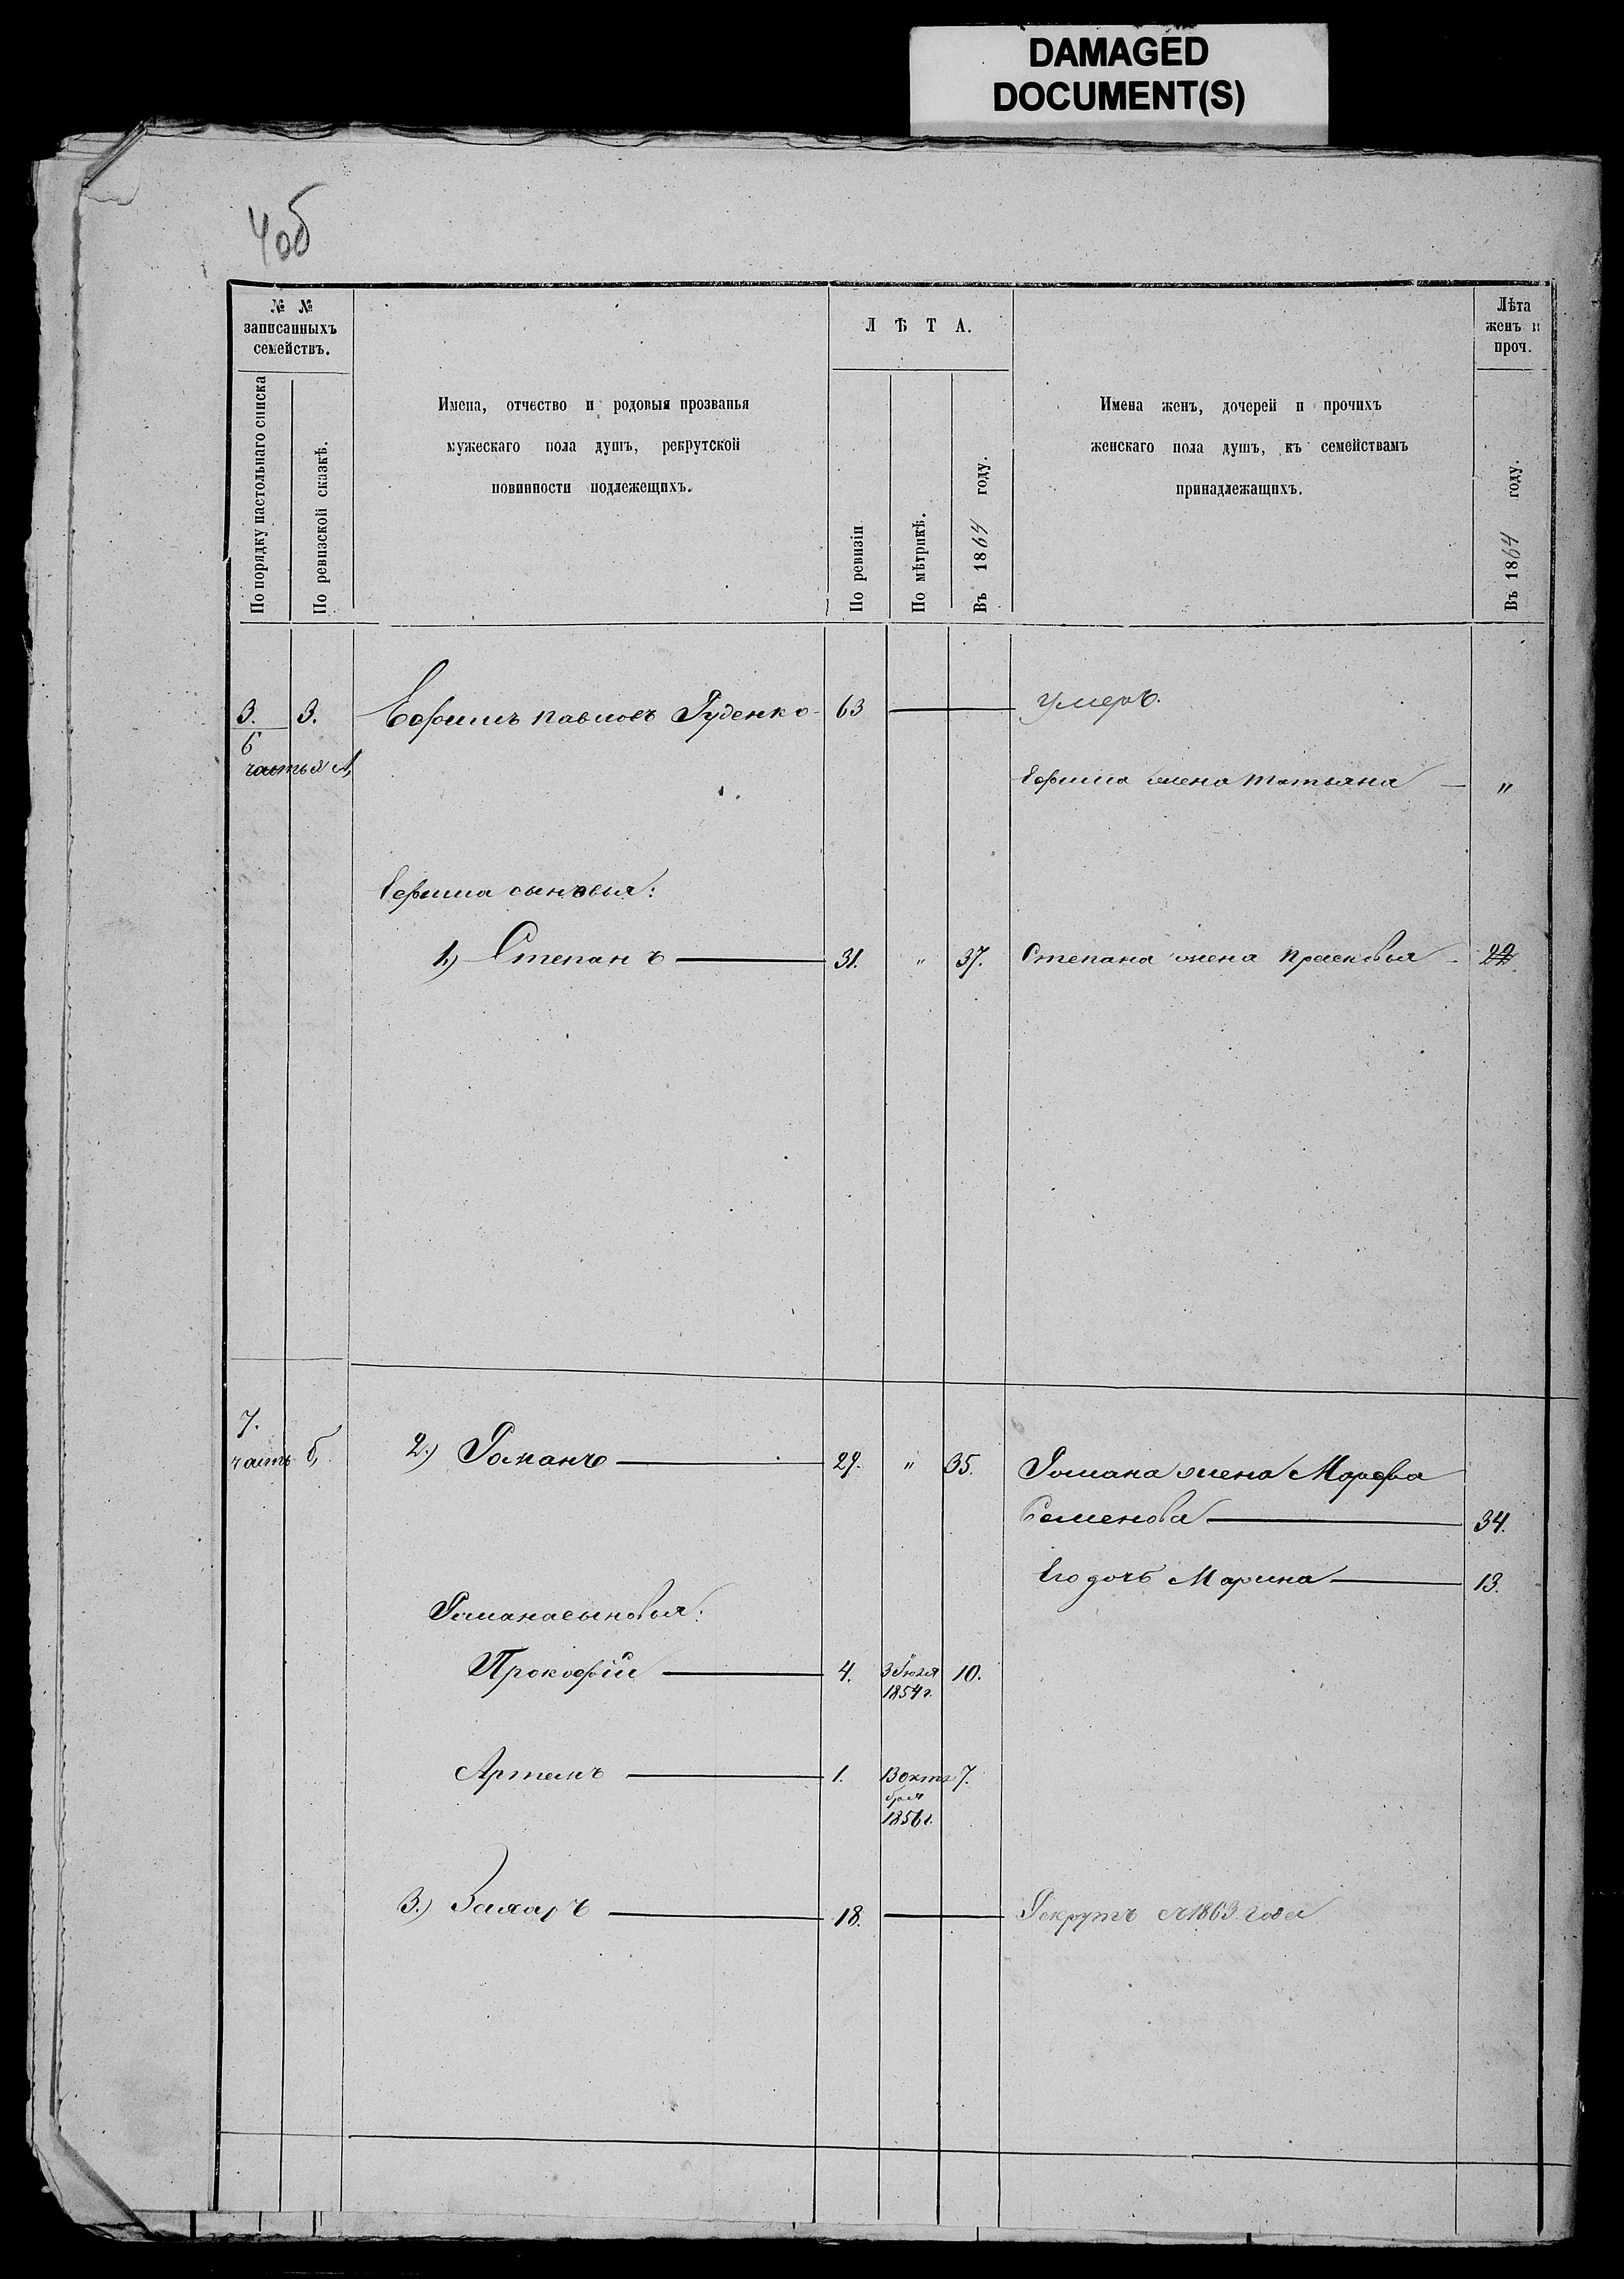 DAMAGED
DOCUMENT(S)
4об
№ №
записанныхъ
семействъ.
По порядку настольнаго списка
По ревизской сказкѣ.
Имена, отчество и родовыя прозванья
мужескаго пола душъ, рекрутской
повинности подлежещихъ.
Л Ѣ Т А.
По ревизіи
По мѣтрикѣ.
Въ 1864 году.
Имена женъ, дочерей и прочихъ
женскаго пола душъ, къ семействамъ
принадлежащихъ.
Лѣта
женъ и
проч.
Въ 1864 году.
3. 3. Ефимъ павловъ Руденко 63 умеръ.
6
частья А,
Ефима жена татьяна — "
Ефима сыновья:
1.) Степанъ 31. " 37. Степана жена прасковья 22.
7.
часть б, 2.) Романъ 29. " 35. Романа жена Марфа
Семенова 34.
Его дочь Марина 13.
Романа сыновья:
Прокофій 4. 3 Іюля 10.
1854 г.
Артемъ 1. 13 октя 7.
бря
1856 г.
3.) Захаръ 18. Рекрутъ съ 1863. года